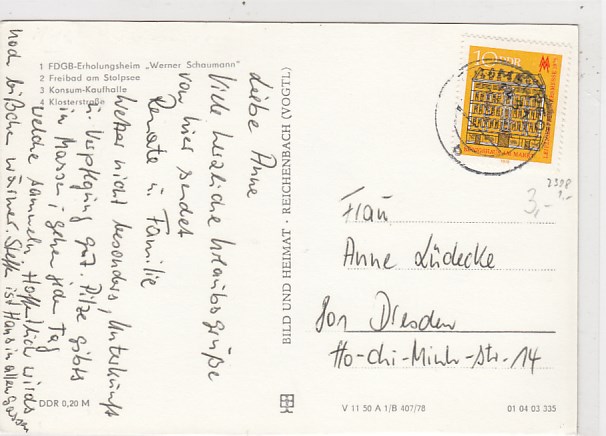 1 FDGB-Erholungsheim „Werner Schaumann"
2 Freibad am Stolpsee
3 Konsum-Kaufhalle
4 Klosterstraße
Liebe Anne
Viele herzliche Urlaubsgrüße
von hier sendet
Renate u. Familie
Wetter nicht besonders, Unterkunft
u. Verpflegung gut. Pilze gibts
in Massen, gehen jeden Tag
welche sammeln. Hoffentlich wirds
noch bißchen wärmer. Steffen ist Hans in allen Gassen
DDR 0,20 M
BILD UND HEIMAT · REICHENBACH (VOGTL)
10 DDR
Frau
Anne Lüdecke
801 Dresden
Ho-chi-Minh-Str. 14
3,-
V 11 50 A 1/B 407/78
01 04 03 335